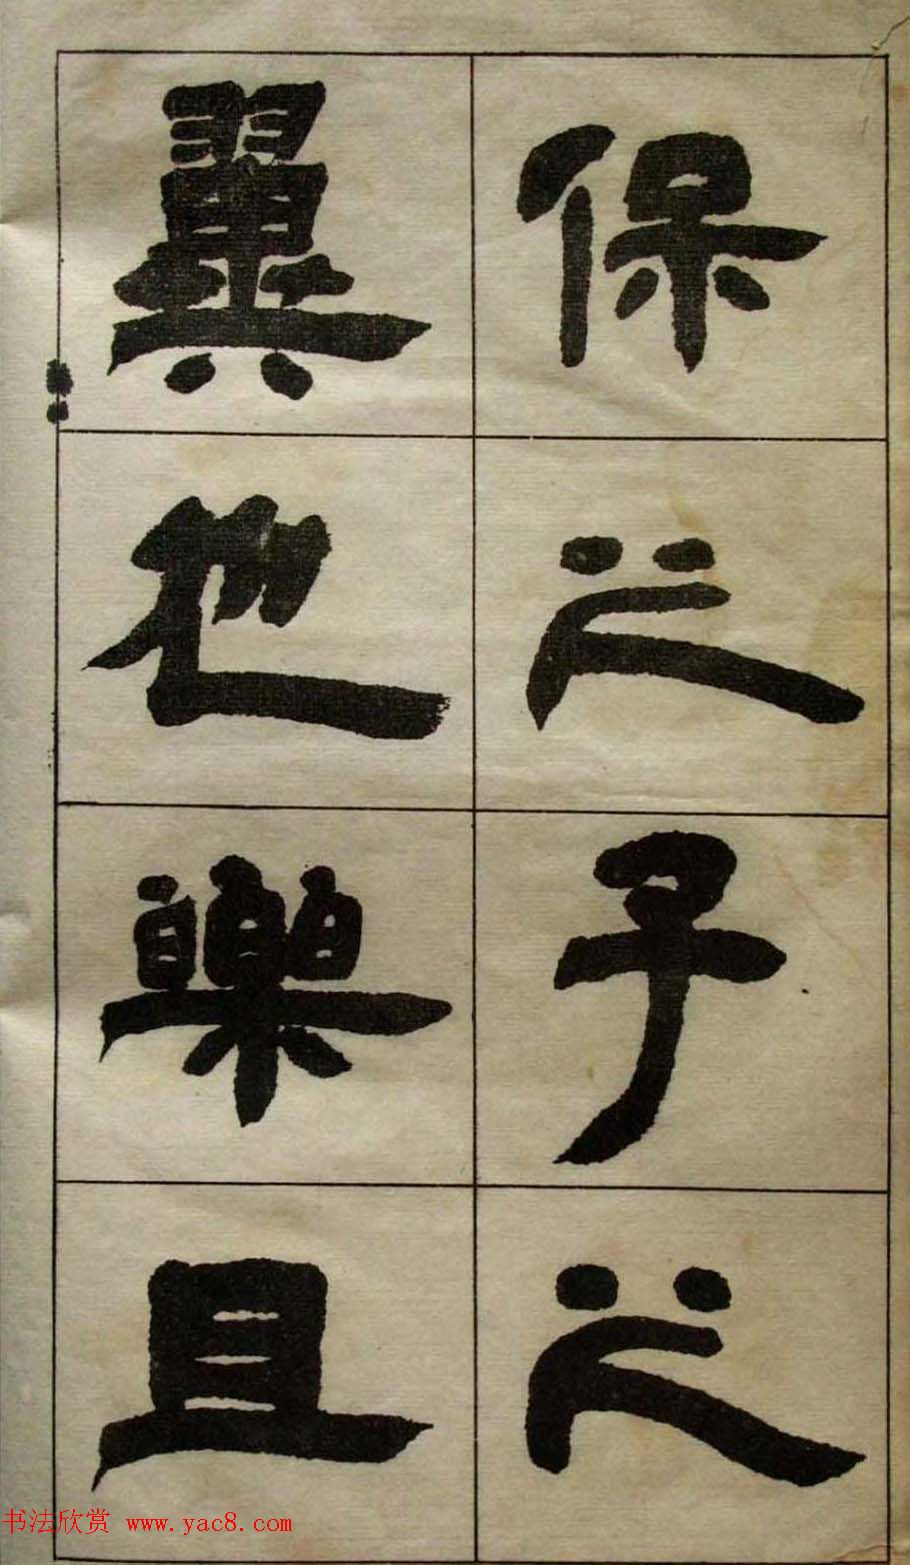 保之子之
翼也樂且
书法欣赏 www.yac8.com